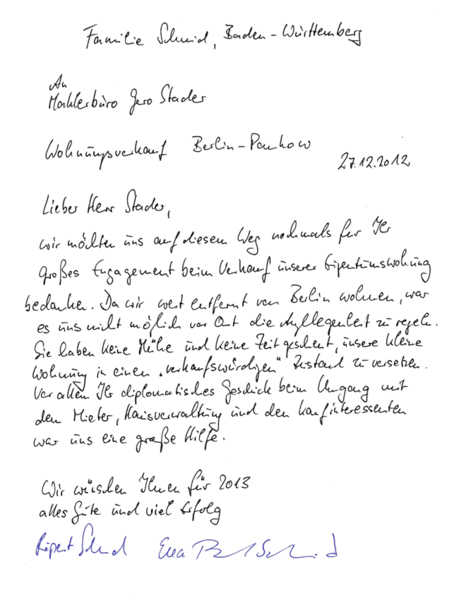 Familie Schmid, Baden-Württemberg
An
Maklerbüro Jero Stader
Wohnungsverkauf Berlin-Pankow
27.12.2012
Lieber Herr Stader,
wir möchten uns auf diesem Weg nochmals für Ihr
großes Engagement beim Verkauf unserer Eigentumswohnung
bedanken. Da wir weit entfernt von Berlin wohnen, war
es uns nicht möglich vor Ort die Angelegenheit zu regeln.
Sie haben keine Mühe und keine Zeit gescheut, unsere kleine
Wohnung in einen "verkaufswürdigen" Zustand zu versetzen.
Vor allem Ihr diplomatisches Geschick beim Umgang mit
dem Mieter, Hausverwaltung und den Kaufinteressenten
war uns eine große Hilfe.
Wir wünschen Ihnen für 2013
alles Gute und viel Erfolg
Rupert Schmid Eva